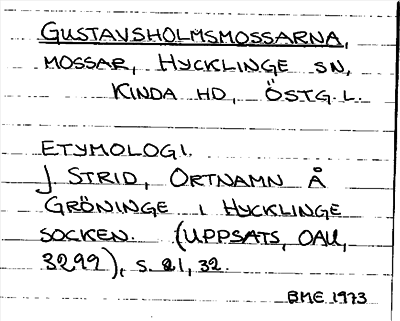 GUSTAVSHOLMSMOSSARNA,
MOSSAR, HYCKLINGE SN,
KINDA HD, ÖSTG. L.
ETYMOLOGI.
J STRID, ORTNAMN Å
GRÖNINGE I HYCKLINGE
SOCKEN. (UPPSATS, OAU,
3299), S. 21, 32.
BME 1973